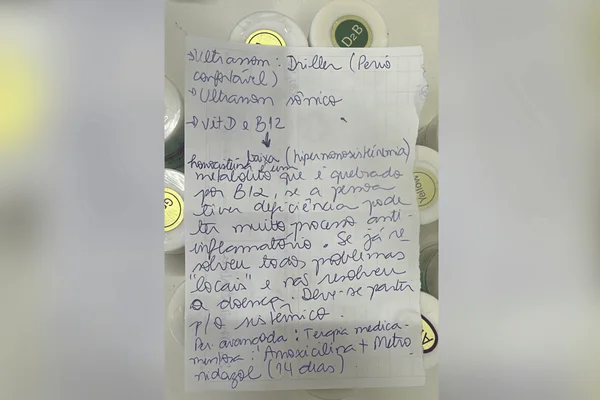 D2B
→ Ultrassom: Driller (Perio
confortável)
→ Ultrassom sônico
→ Vit D e B12
↓
baixa (hiperhomosisteinemia)
homocisteína é um
metabolito que é quebrado
por B12, se a pessoa
tiver deficiência pode
ter muito processo anti-
inflamatório. Se já re-
solveu todos problemas
"locais" e não resolveu
a doença. Deve-se partir
p/o sistêmico.
Per. avançada: Terapia medica-
mentosa: Amoxicilina + Metro-
nidazol (14 dias)
Yellow